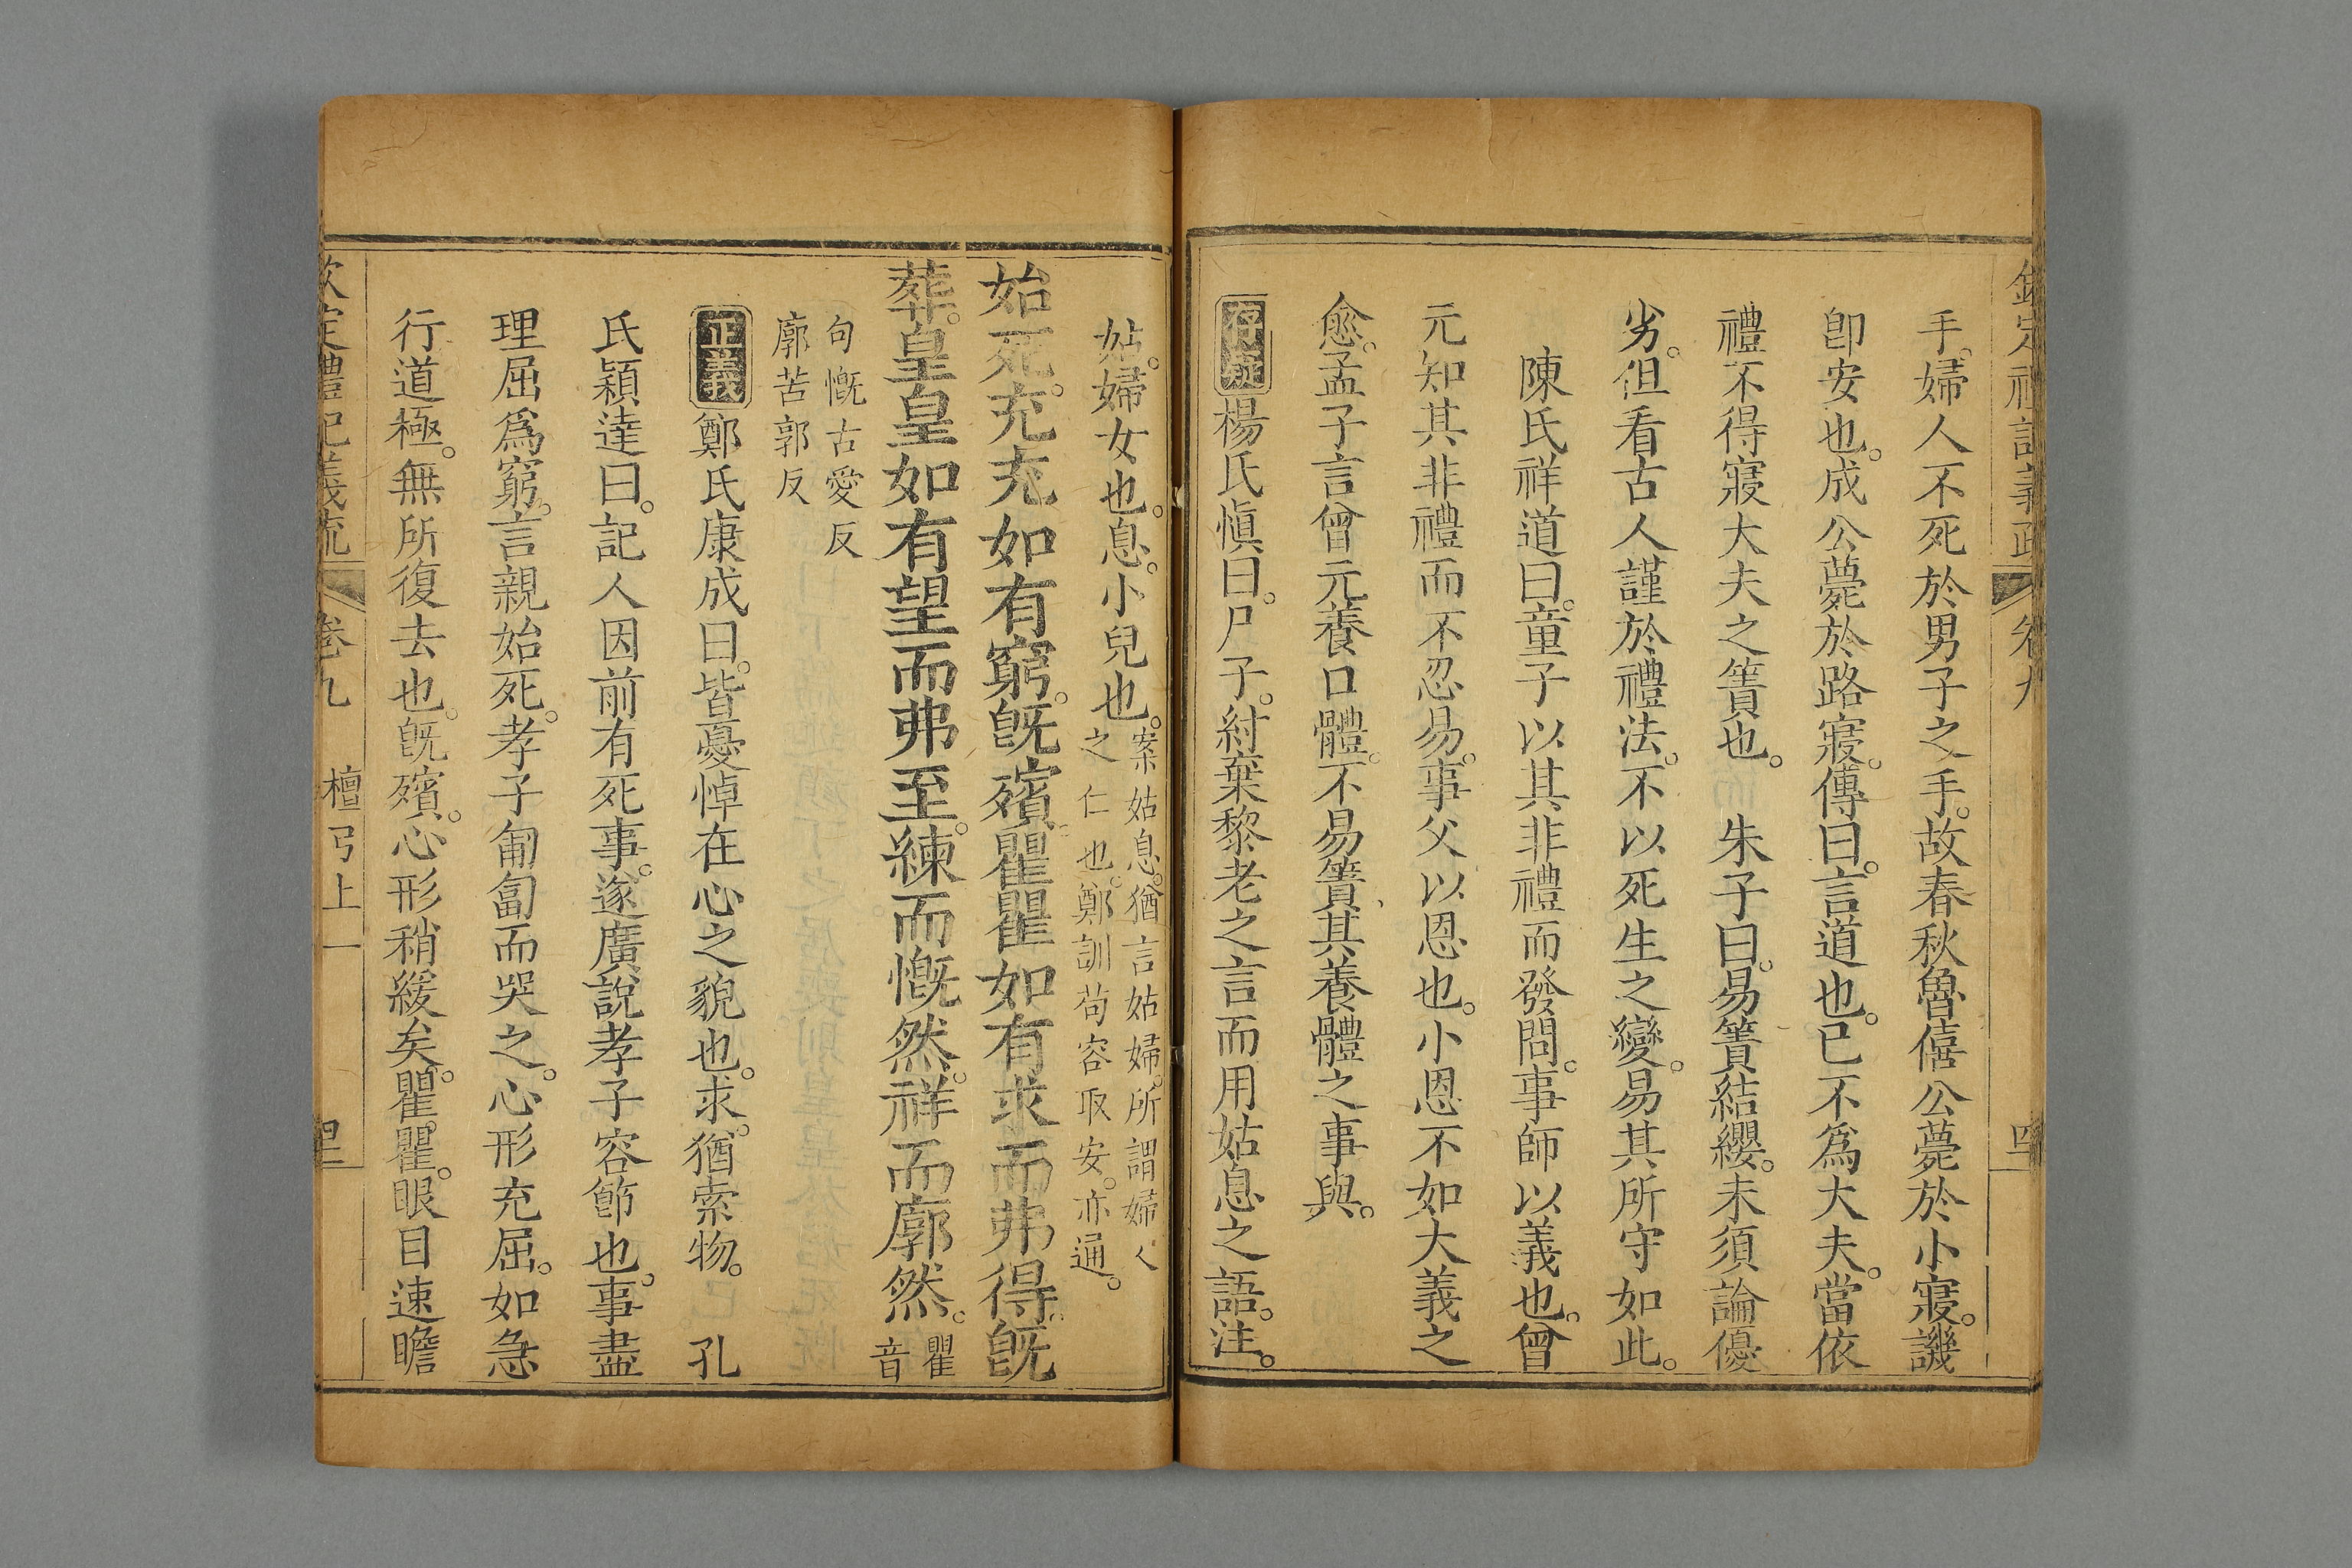 手。婦人不死於男子之手。故春秋魯僖公薨於小寢。譏
卽安也。成公薨於路寢。傳曰。言道也。已不爲大夫。當依
禮不得寢大夫之簀也。 朱子曰。易簀結纓。未須論優
劣。但看古人謹於禮法。不以死生之變。易其所守如此。
陳氏祥道曰。童子以其非禮而發問。事師以義也。曾
元知其非禮而不忍易。事父以恩也。小恩不如大義之
愈。孟子言曾元養口體。不易簀、其養體之事與。
存疑 楊氏愼曰。尸子。紂棄黎老之言而用姑息之語。注。
姑。婦女也。息。小兒也。案姑息。猶言姑婦。所謂婦人
之仁也。鄭訓苟容取安。亦通。
始死。充充如有窮。旣殯。瞿瞿如有求而弗得。旣
葬。皇皇如有望而弗至。練而慨然。祥而廓然。瞿音
句慨古愛反
廓苦郭反
正義 鄭氏康成曰。皆憂悼在心之貌也。求。猶索物。 孔
氏穎達曰。記人因前有死事。遂廣說孝子容節也。事盡
理屈爲窮。言親始死。孝子匍匐而哭之。心形充屈。如急
行道極。無所復去也。旣殯。心形稍緩矣。瞿瞿。眼目速瞻
欽定禮記義疏 卷九 檀弓上一